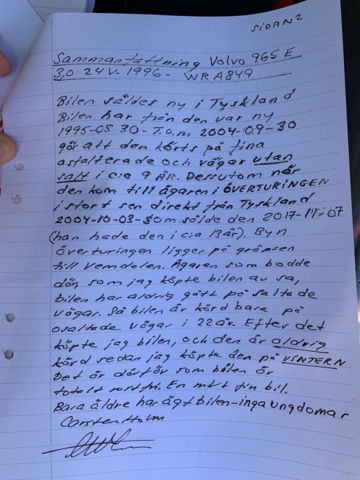 SIDAN 2
Sammanfattning Volvo 965 E
3,0 24V. 1996 - WRA849
Bilen såldes ny i Tyskland
Bilen har från den var ny
1995-05-30 - T.o.m 2004-09-30
gör att den körts på fina
asfalterade och vägar utan
salt i c:a 9 ÅR. Dessutom når
den kom till ägaren i ÖVERTURINGEN
i stort sen direkt från Tyskland
2004-10-03 som sålde den 2017-11-07
(han hade den i c:a 13år). Byn
överturingen ligger på gränsen
till Vemdalen. Ägaren som bodde
där, som jag köpte bilen av sa,
bilen har aldrig gått på saltade
vägar. Så bilen är körd bara på
osaltade vägar i 22år. Efter det
köpte jag bilen, och den är aldrig
körd sedan jag köpte den på VINTERN
Det är därför som bilen är
totalt rostfri. En mkt fin bil.
Bara äldre har ägt bilen - inga ungdomar
Carsten Holm